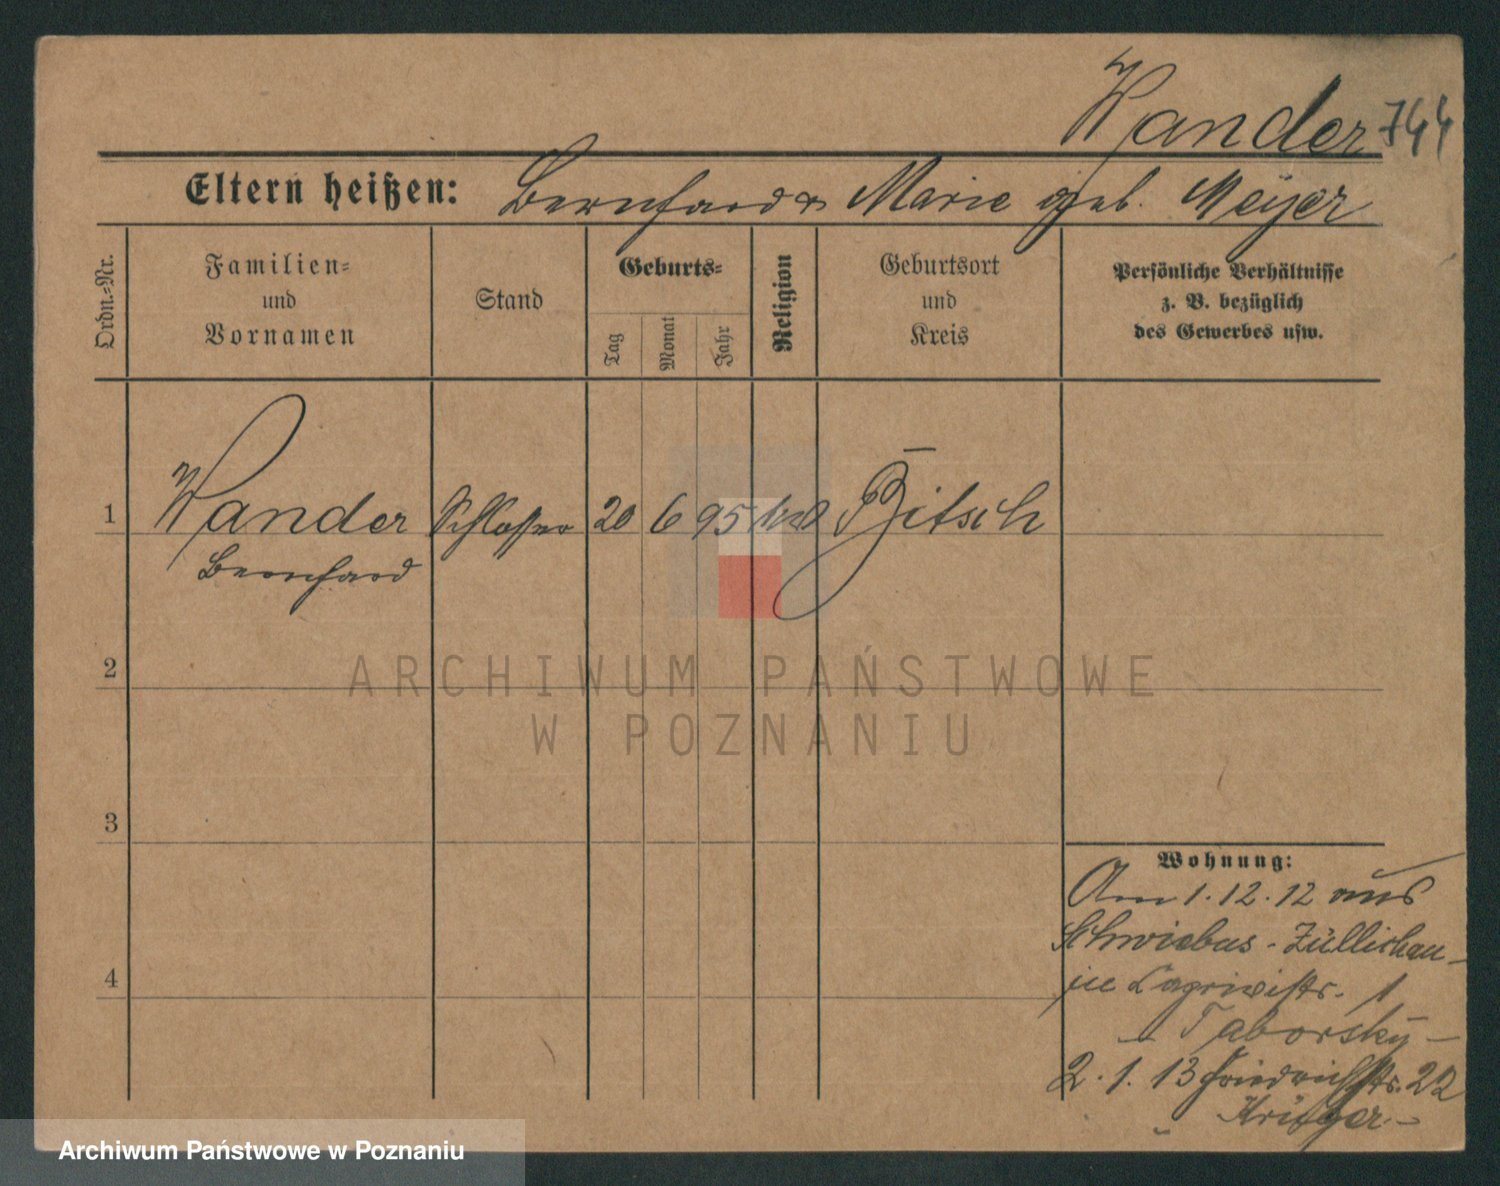 Wander 744
Eltern heißen: Bernhard & Marie geb. Meÿer
Ordn.-Nr.
Familien-
und
Vornamen
Stand
Geburts-
Tag
Monat
Jahr
Religion
Geburtsort
und
Kreis
Persönliche Verhältnisse
z. B. bezüglich
des Gewerbes usw.
1 Wander Schlosser 20 6 95 Bitsch
Bernhard
2
3
4
Wohnung:
Am 1.12.12 aus
Schwiebus - Züllichau -
in 1
Taborsky -
2.1.13 Friedrichstr. 22
Krüger -
ARCHIWUM PAŃSTWOWE
W POZNANIU
Archiwum Państwowe w Poznaniu